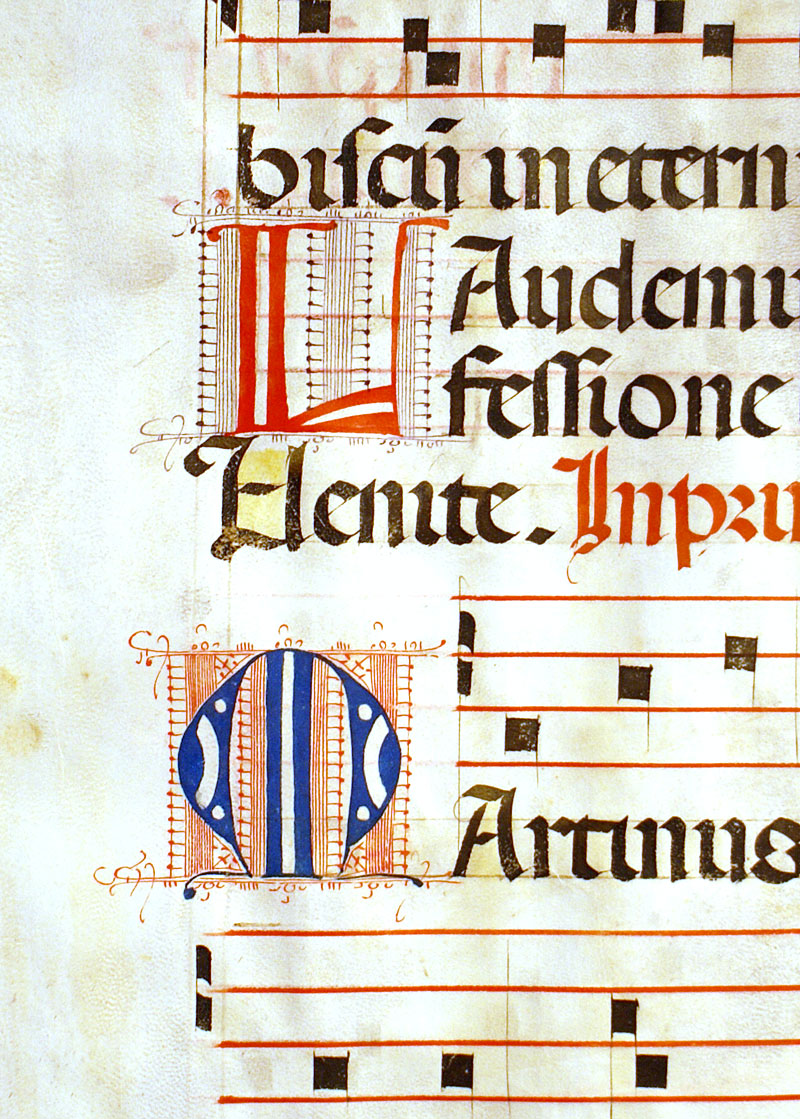 biscū in etern
LAudemu
fessione
Uenite. Inpri
MArtinus